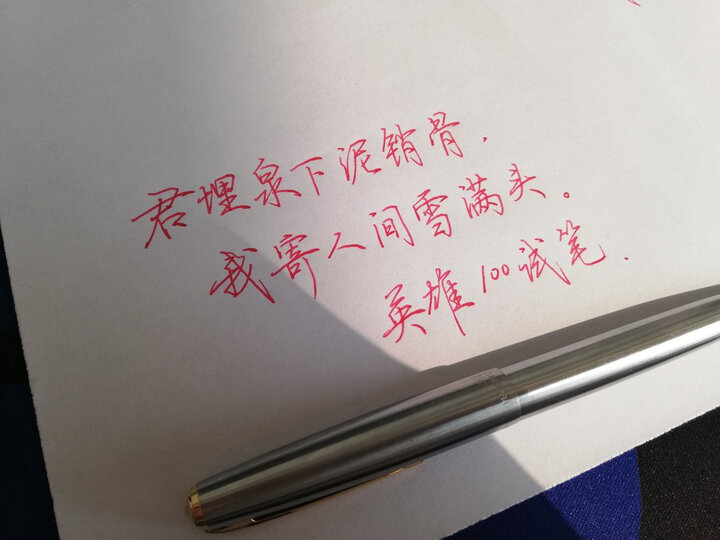 君埋泉下泥销骨.
我寄人间雪满头。
英雄100试笔.